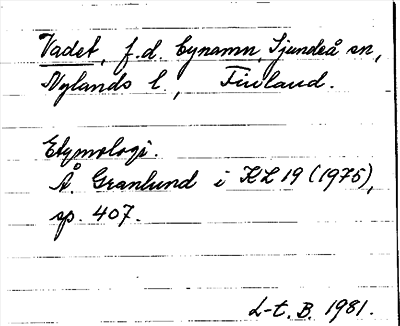 Vadet, f.d. bynamn, Sjundeå sn,
Nylands l., Finland.
Etymologi.
Å. Granlund i KL 19 (1975),
sp. 407.
L-t. B. 1981.